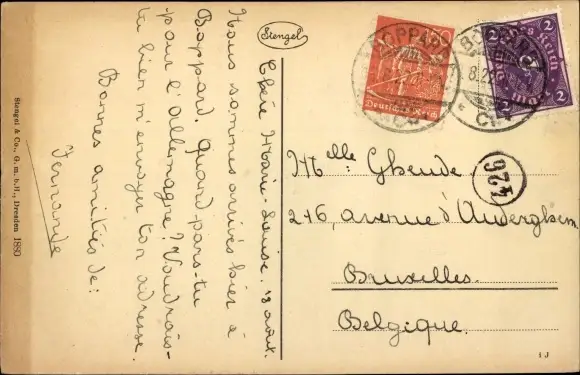 Stengel
Chère Marie-Louise. 18 août.
Nous sommes arrivés hier à
Boppard. Quand pars-tu
pour l'Allemagne? Voudrais-
tu bien m'envoyer ton adresse.
Bonnes amitiés de:
Fernande
Stengel & Co., G. m. b. H., Dresden 1880
BOPPARD
Deutsches Reich
BOPPARD
8.22
2
2
2
Deutsches Reich
Melle: Gheude.
426
216, avenue d'Auderghem.
Bruxelles.
Belgique.
IJ